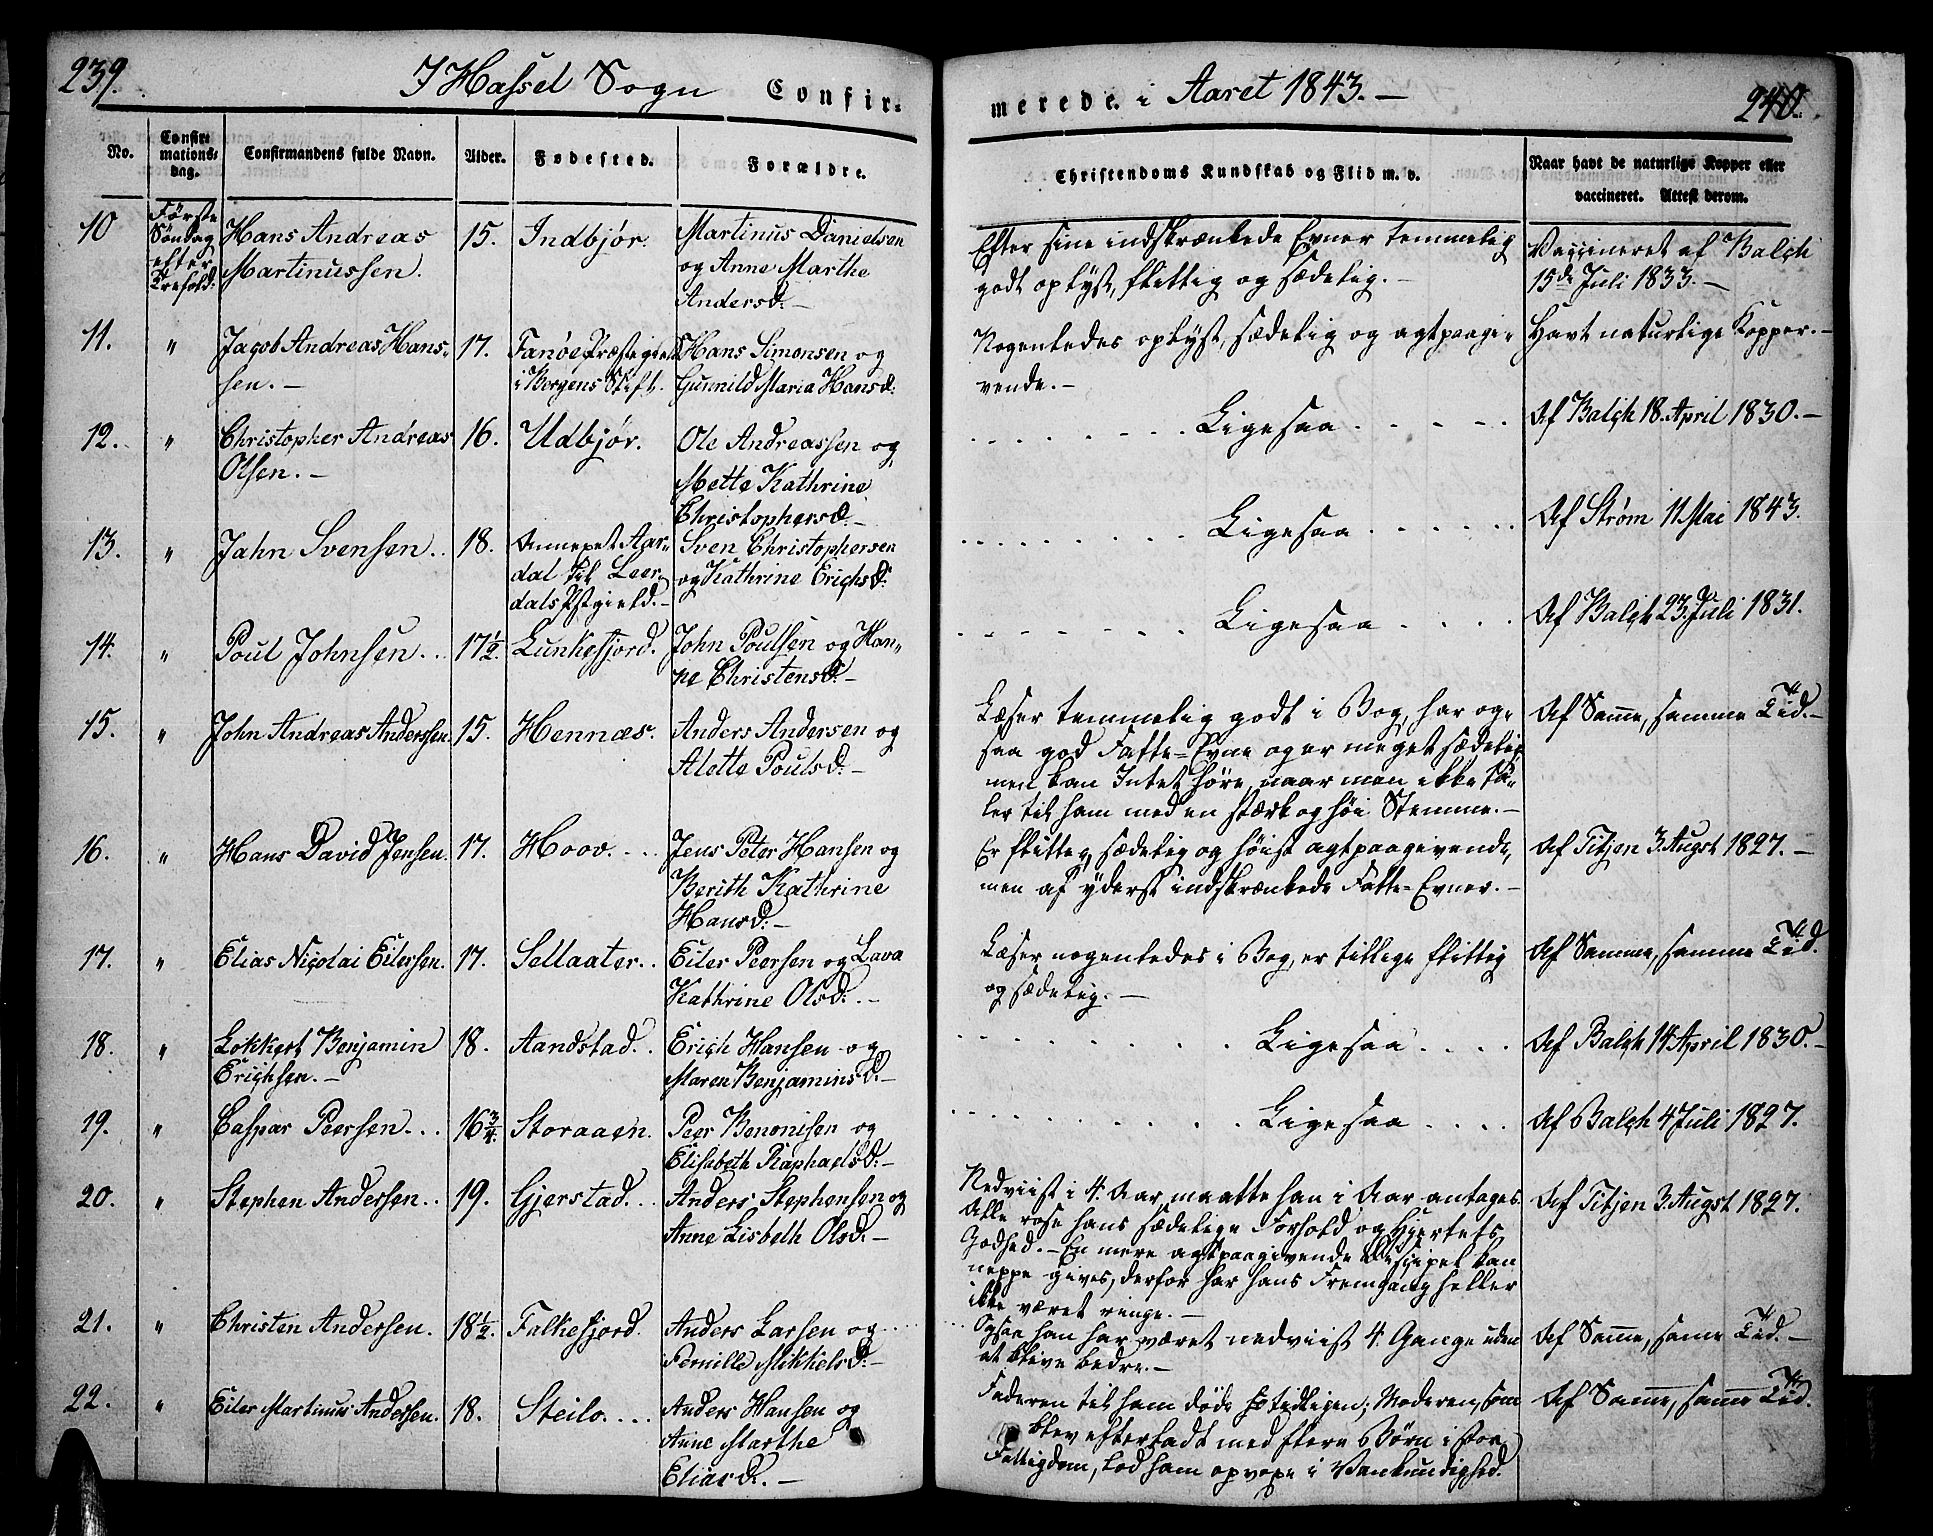 239. I Hassel Sogn Confir-
merede i Aaret 1843. — 240.
No. Confirmationsdag. Confirmandens fulde Navn. Alder. Fødested. Forældre.
Christendoms Kundskab og Flid m. v. Naar havt de naturlige Kopper eller
vaccineret. Attest derom.
10 Første Søndag efter Trefold: Hans Andreas 15. Indbjør. Martinus Danielsen
Martinussen. og Anne Marthe
Andersd:—
Efter sine indskrænkede Evner temmelig
godt oplyst, flittig og sædelig.—
Vaccineret af Balch
15de Juli 1833.—
11. " Jacob Andreas Hans- 17. Fanøe Præstegield Hans Simonsen og
sen.— i Bergens Stift. Gunnild Maria Hansd:
Nogenledes oplyst, sædelig og agtpaagi-
vende.—
Havt naturlige Kopper.—
12. " Christopher Andreas 16. Udbjør. Ole Andreassen og
Olsen.— Mette Kathrine
Christophersd:—
Ligesaa
Af Balch 18. April 1830.—
13. " Jahn Svensen.. 18. Annexet Aar- Sven Christophersen
dal til Leer- og Kathrine Erichsd:
dals Pstgield.—
Ligesaa
Af Strøm 11 Mai 1843.
14. " Poul Johnsen... 17½ Lunkefjord. John Poulsen og Han-
ne Christensd:—
Ligesaa
Af Balch 23. Juli 1831.
15. " John Andreas Anderssen. 15. Hennæs. Anders Andersen og
Alette Poulsd:—
Læser temmelig godt i Bog, har og-
saa god Fatte-Evne og er meget sædelig
men kan Intet høre, naar man ikke ta-
ler til ham med en stærk og høi Stemme.—
Af Samme, samme Tid.—
16. " Hans David Jensen. 17. Hoov.... Jens Peter Hansen og
Berith Kathrine
Hansd:—
Er flittig, sædelig og høist agtpaagivende,
men af yderst indskrænkede Fatte-Evner.—
Af Titjen 3. Augst 1827.—
17. " Elias Nicolai Eilersen. 17. Sellaater.. Eiler Peersen og Lava
Kathrine Olsd:.—
Læser nogenledes i Bog, er tillige flittig
og sædelig.—
Af Samme, samme Tid.
18. " Lokkert Benjamin 18. Aandstad.. Erich Hansen og
Erichsen.— Maren Benjaminsd:—
Ligesaa
Af Balch 14 April 1830.—
19. " Caspar Peersen... 16¾. Storaaen. Peer Benonisen og
Elisabeth Raphaelsd:—
Ligesaa
Af Balch 4 Juli 1827.
20. " Stephen Andersen.. 19. Gjerstad... Anders Stephensen og
Anne Lisbeth Olsd:—
Nedviist i 4. Aar, maatte han i Aar antages.
Alle rose hans sædelige Forhold og Hjertets
Godhed.— En mere agtpaagivende Discipel kan
neppe gives, derfor har hans Fremgang heller
ikke været ringe.—
Af Titjen 3. Augst 1827.
21. " Christen Andersen. 18½. Falkefjord. Anders Larsen og
Pernille Mikkelsd:—
Ogsaa han har været nedviist 4. Gange uden
at blive bedre.—
Af Samme, same Tid.—
22. " Eiler Martinus Andersen. 18. Steilo.... Anders Hansen og
Anne Marthe
Eliasd:—
Faderen til ham døde tidligen; Moderen, som
blev efterladt med flere Børn i stor
Fattigdom, lod ham opvoxe i Vankundighed.
Af Samme, samme Tid.